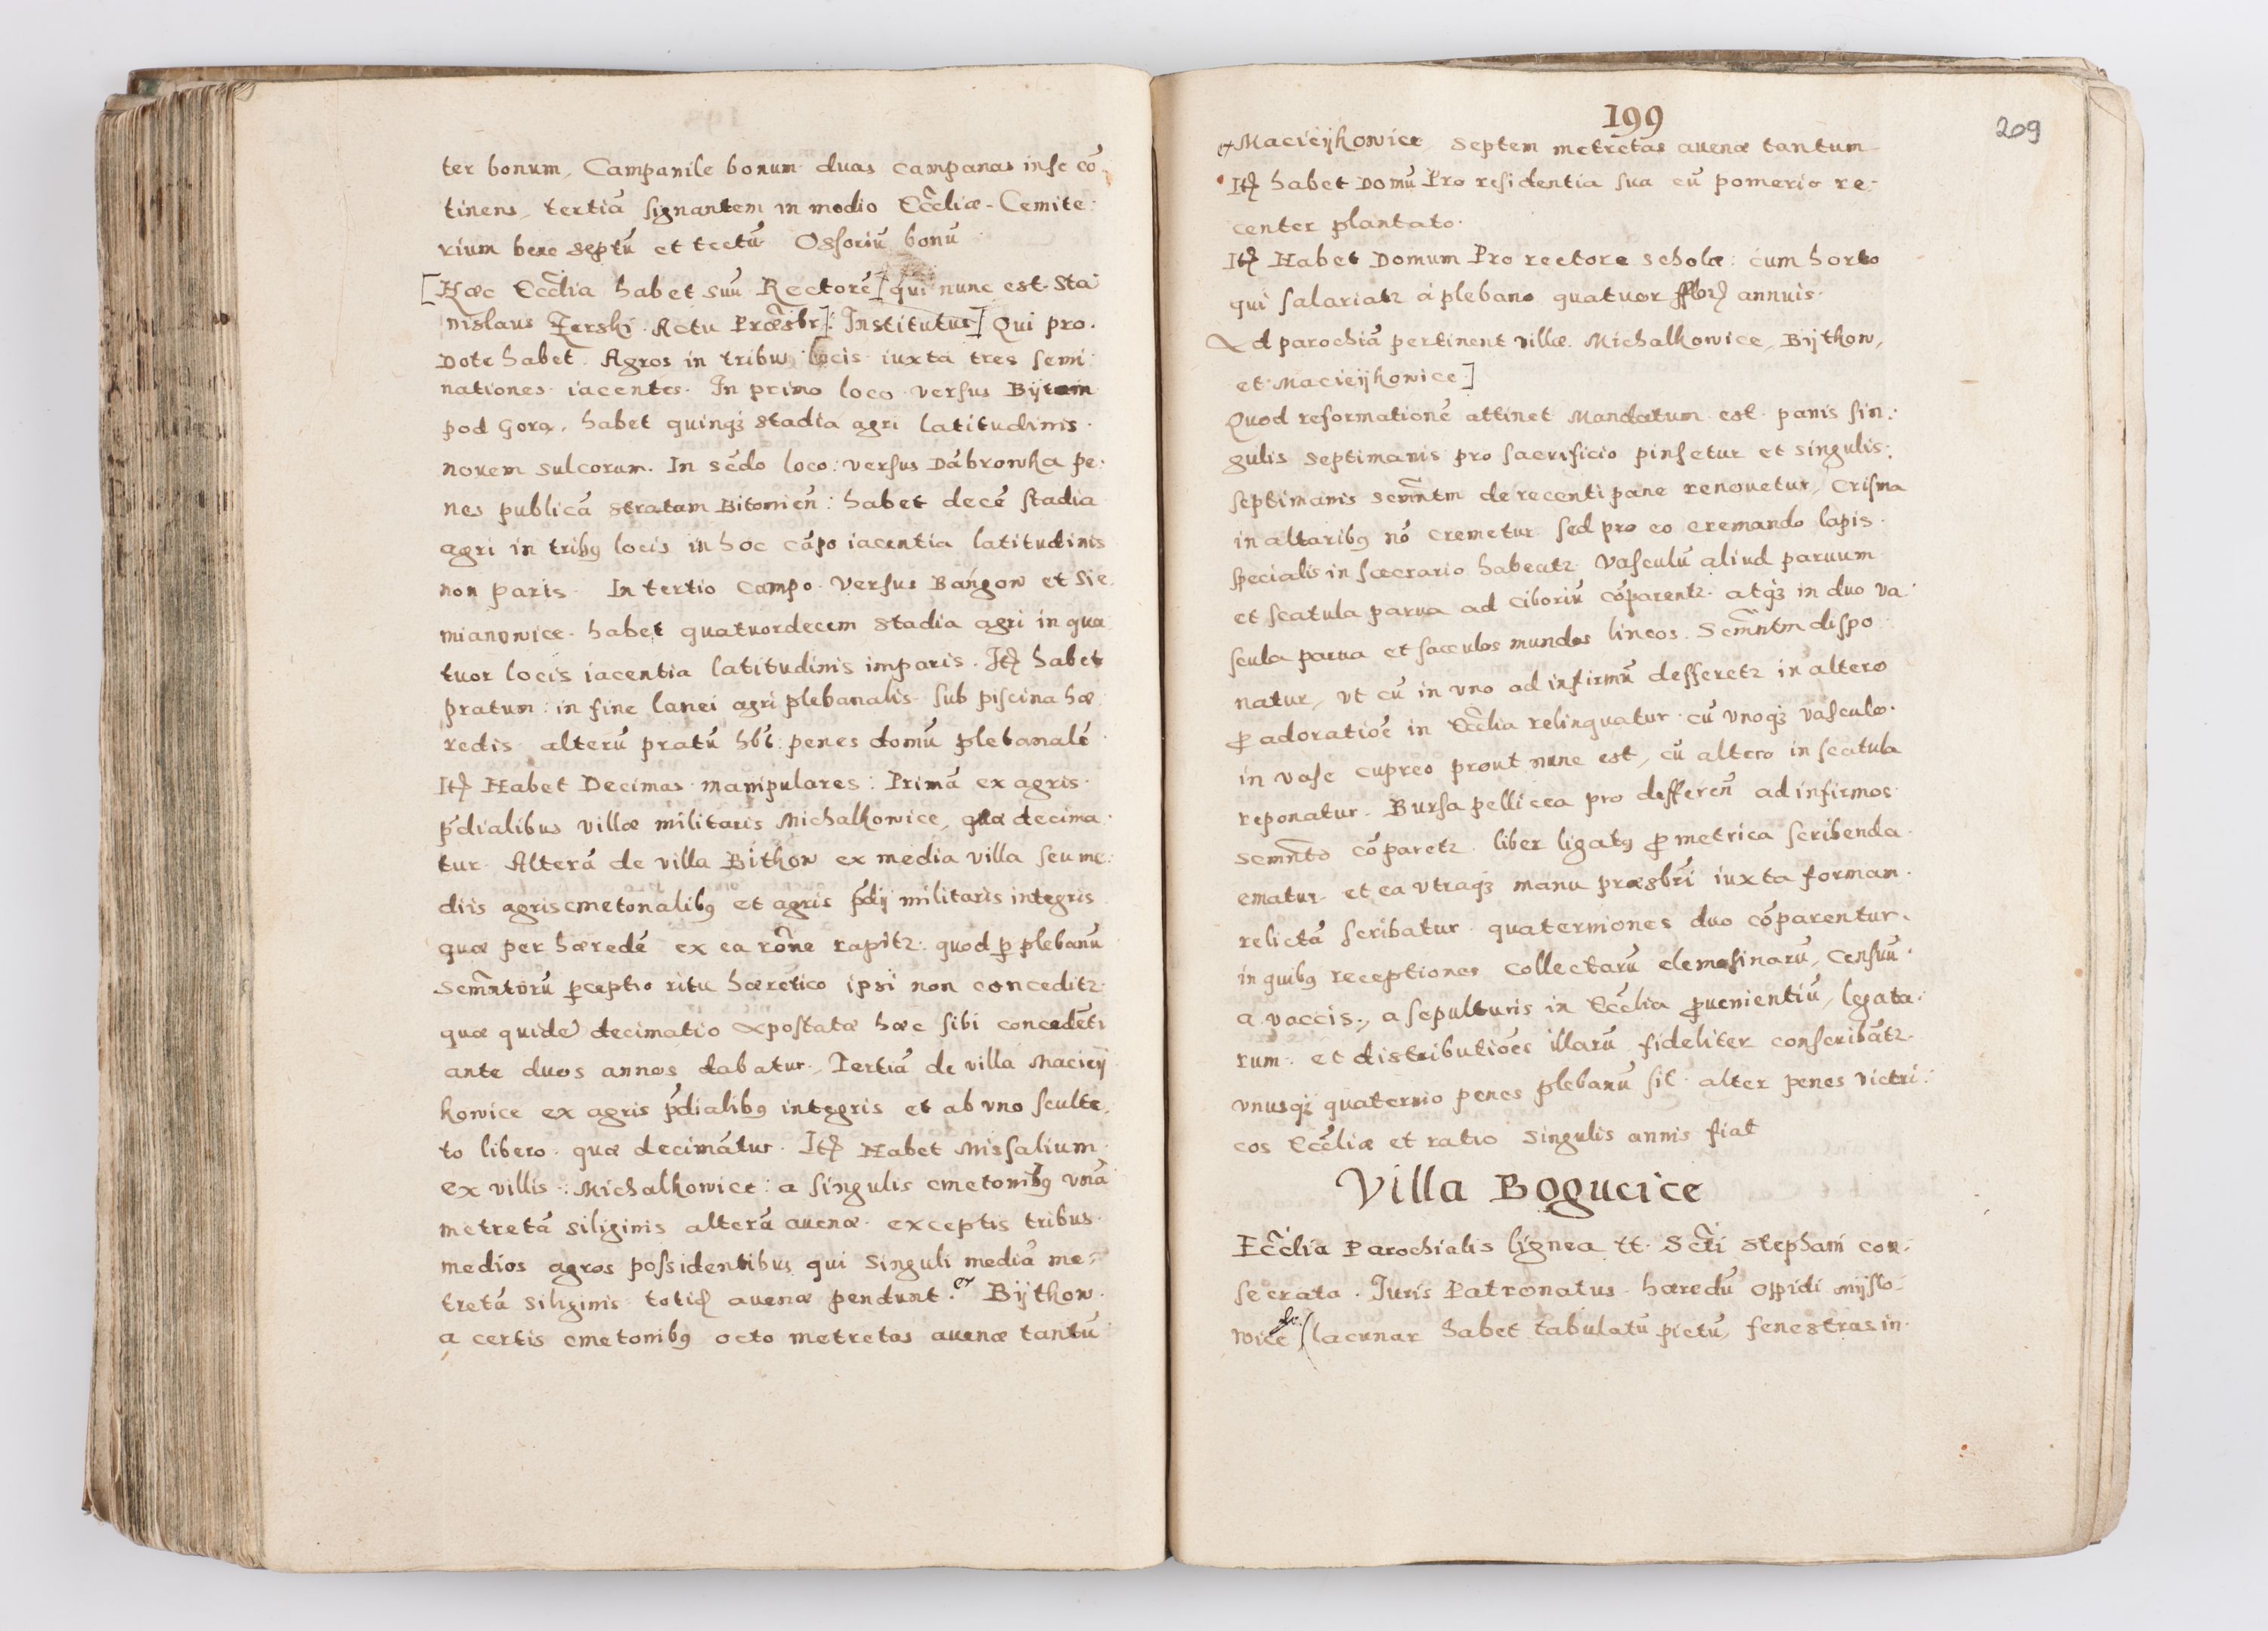 ter bonum, Campanile bonum duas campanas in se cō
tinens, tertiā signantem in medio Eccliæ - Cemite:
rium bene septū et tectū Ossoriū bonū
[Hæc Ecclia habet suū Rectorē] qui nunc est Sta
nislaus Zerski Actu Præsbr]: Institutus] Qui pro.
Dote habet. Agros in tribus locis iuxta tres semi
nationes iacentes. In primo loco versus Bijtom
pod Gorą, habet quinqȝ stadia agri latitudinis.
novem sulcorum. In sēdo loco: versus Dąbrowka pe:
nes publicā stratam Bitomien̄: habet decē stadia
agri in tribꝰ locis in hoc cāpo iacentia latitudinis
non paris. In tertio campo versus Bangow et Sie
mianowice. habet quatuordecem stadia agri in qua
tuor locis iacentia latitudinis imparis. Itꝫ habet
pratum: in fine lanei agri plebanalis sub piscina hæ
redis alterū pratū hb̄t penes domū plebanalē
Itꝫ Habet Decimas manipulares: Primā ex agris.
p̄dialibus villæ militaris Michalkowice, quæ decima
tur. Alterā de villa Bithow ex media villa seu me:
diis agris cmetonalibꝰ et agris p̄dij militaris integris
quæ per hæredē ex ea rōne rapitr: quod ꝑ plebanū
Semn̄torū ꝑceptio ritu hæretico ipsi non conceditr
quæ quidē decimatio apostatæ hæc sibi concedēti
ante duos annos dabatur. Tertiā de villa Macieij
kowice ex agris p̄dialibꝰ integris et ab vno sculte,
to libero. quæ decimātur. Itꝫ Habet Missalium
ex villis: Michalkowice: a singulis cmetonibꝰ vnā
metretā siliginis alterā auenæ. exceptis tribus.
medios agros possidentibus qui singuli mediā me:
tretā siliginis totiꝫ auenæ pendunt. et Bijthow.
a certis cmetonibꝰ octo metretas auenæ tantū
199
209
et Macieijkowice septem metretas auenæ tantum
Itꝫ habet Domū Pro residentia sua cū pomerio re:
center plantato.
Itꝫ Habet Domum Pro rectore scholæ: cum horto
qui salariatr a plebano quatuor fflorꝫ annuis.
Ad parochiā pertinent villæ. Michalkowice, Bijthow,
et Macieijkowice]
Quod reformationē attinet Mandatum est. panis sin:
gulis septimanis pro sacrificio pinsetur et singulis.
septimanis semn̄tm de recenti pane renouetur, Crisma
in altaribꝰ nō cremetur sed pro eo cremando lapis.
specialis in sacrario habeatr Vasculū aliud paruum
et scatula parua ad ciboriū cōparentr. atqȝ in duo va
scula parua et sacculos mundos lineos. Semn̄tm dispo
natur, vt cū in vno ad infirmū defferetr in altero
ꝓ adoratioē in Ecclia relinquatur. cū vnoqȝ vasculo.
in vase cupreo prout nunc est, cū altero in scatula
reponatur. Bursa pellicea pro defferen̄ ad infirmos
semn̄to cōparetr. liber ligatꝰ ꝓ metrica scribenda
ematur et ea vtraqȝ manu præsbr̄i iuxta forman
relictā scribatur. quaterniones duo cōparentur.
in quibꝰ receptiones collectarū elemosinarū, Censuū
a vaccis, a sepulturis in Ecclia ꝓuenientiū, legata:
rum et distributiōes illarū fideliter conscribātr.
vnusqȝ quaternio penes plebanū sit. alter penes vitri:
cos Eccliæ et ratio singulis annis fiat
Villa Bogucice
Ecclia Parochialis lignea tt. Scti Stephani con:
secrata. Iuris Patronatus. hæredū oppidi Mijslo:
wice (lacunar habet tabulatū pictū, fenestras in.